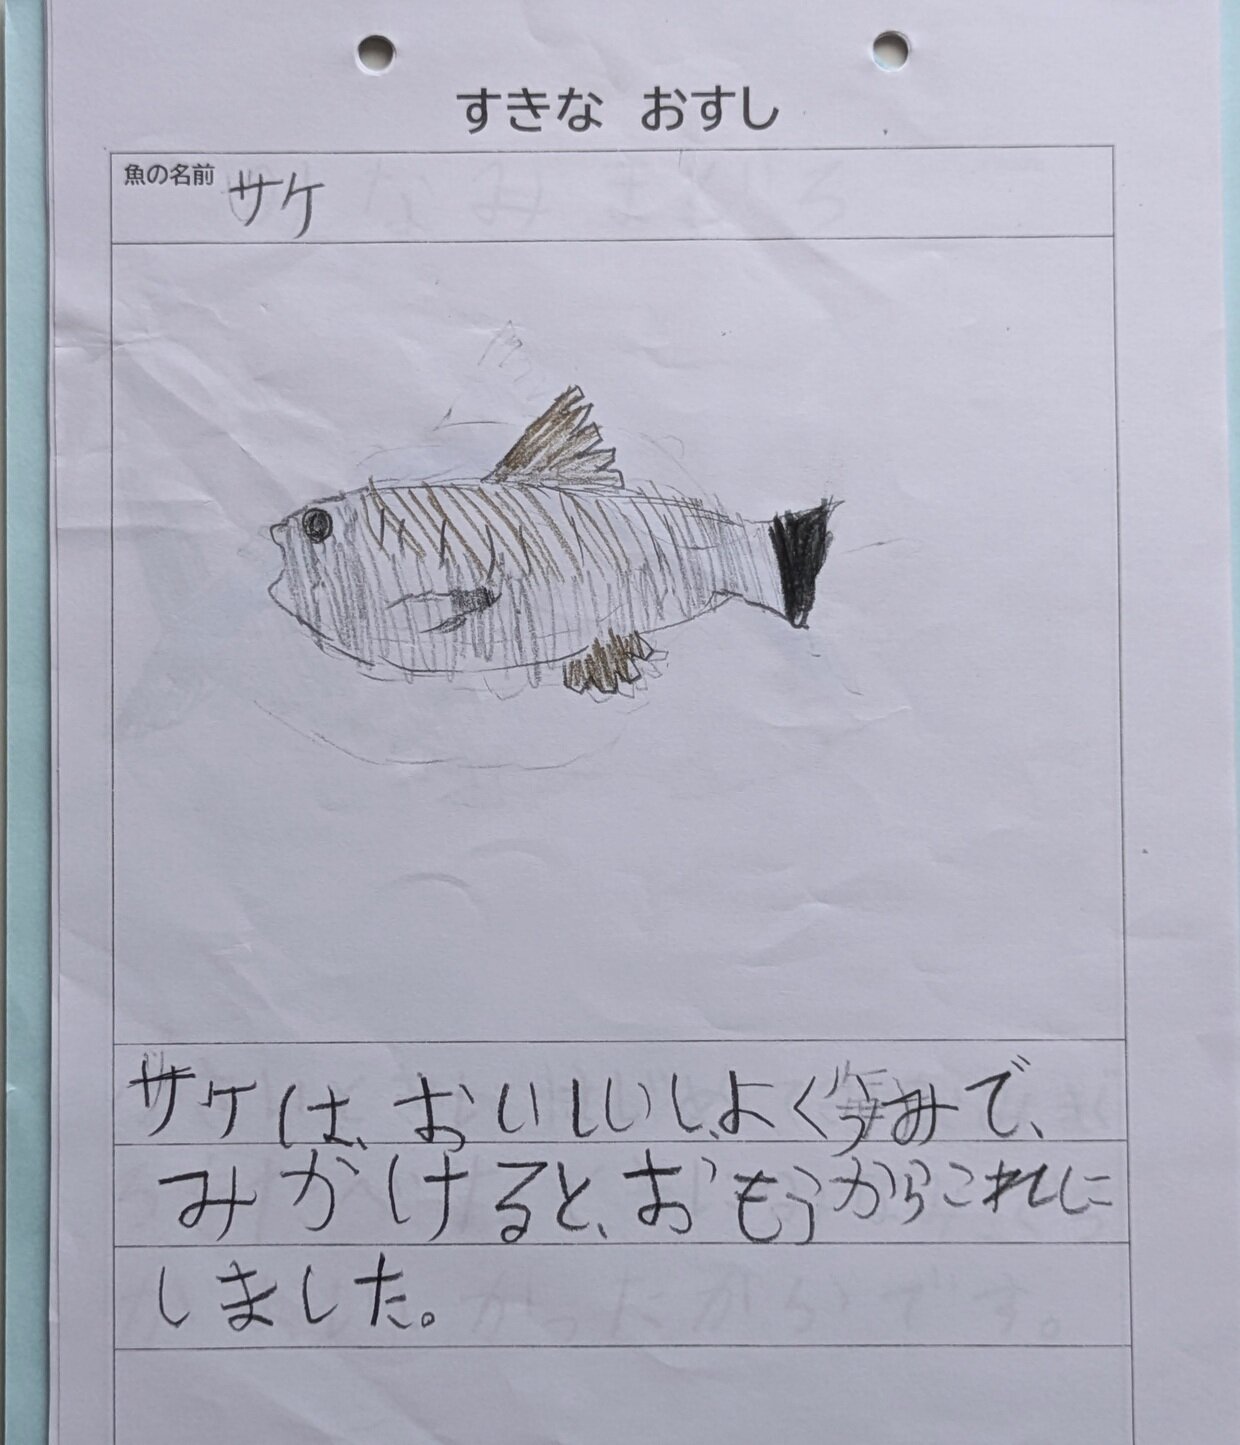 すきな おすし
魚の名前 サケ
サケは、おいしいし、よくうみで、
みかけると、おもうからこれに
しました。